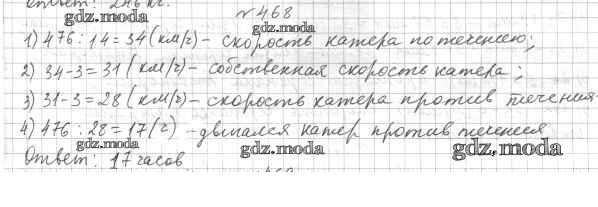 Ответ: 246 кг.
№468
gdz.moda
gdz.moda
1) 476:14=34(км/ч)- скорость катера по течению;
2) 34-3=31(км/ч)- собственная скорость катера;
3) 31-3=28(км/ч)- скорость катера против течения
4) 476:28=17(ч) -двигался катер против течения
gdz.moda
gdz.moda
gdz.moda
Ответ: 17 часов